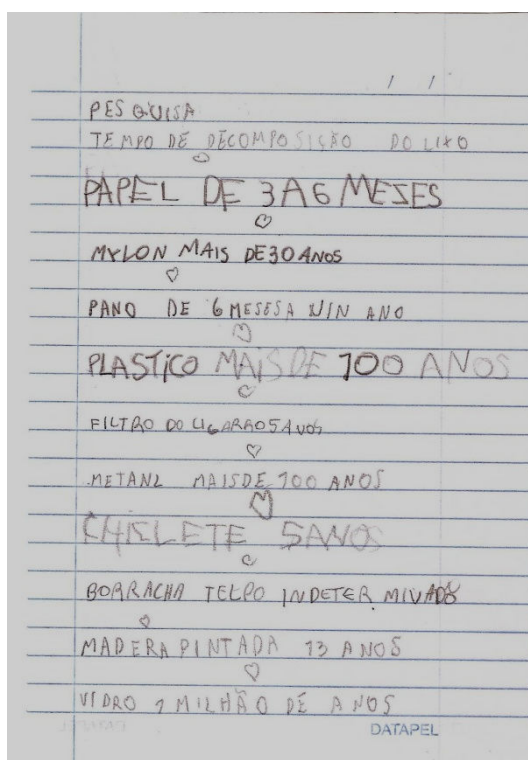 / /
PESQUISA
TEMPO DE DECOMPOSIÇÃO DO LIXO
PAPEL DE 3 A 6 MESES
MYLON MAIS DE 30 ANOS
PANO DE 6 MESES A UIN ANO
PLASTICO MAIS DE 100 ANOS
FILTRO DO CIGARRO 5 ANOS
METANL MAIS DE 100 ANOS
CHICLETE 5 ANOS
BORRACHA TELPO INDETERMIVADO
MADERA PINTADA 13 ANOS
VIDRO 1 MILHÃO DE ANOS
DATAPEL